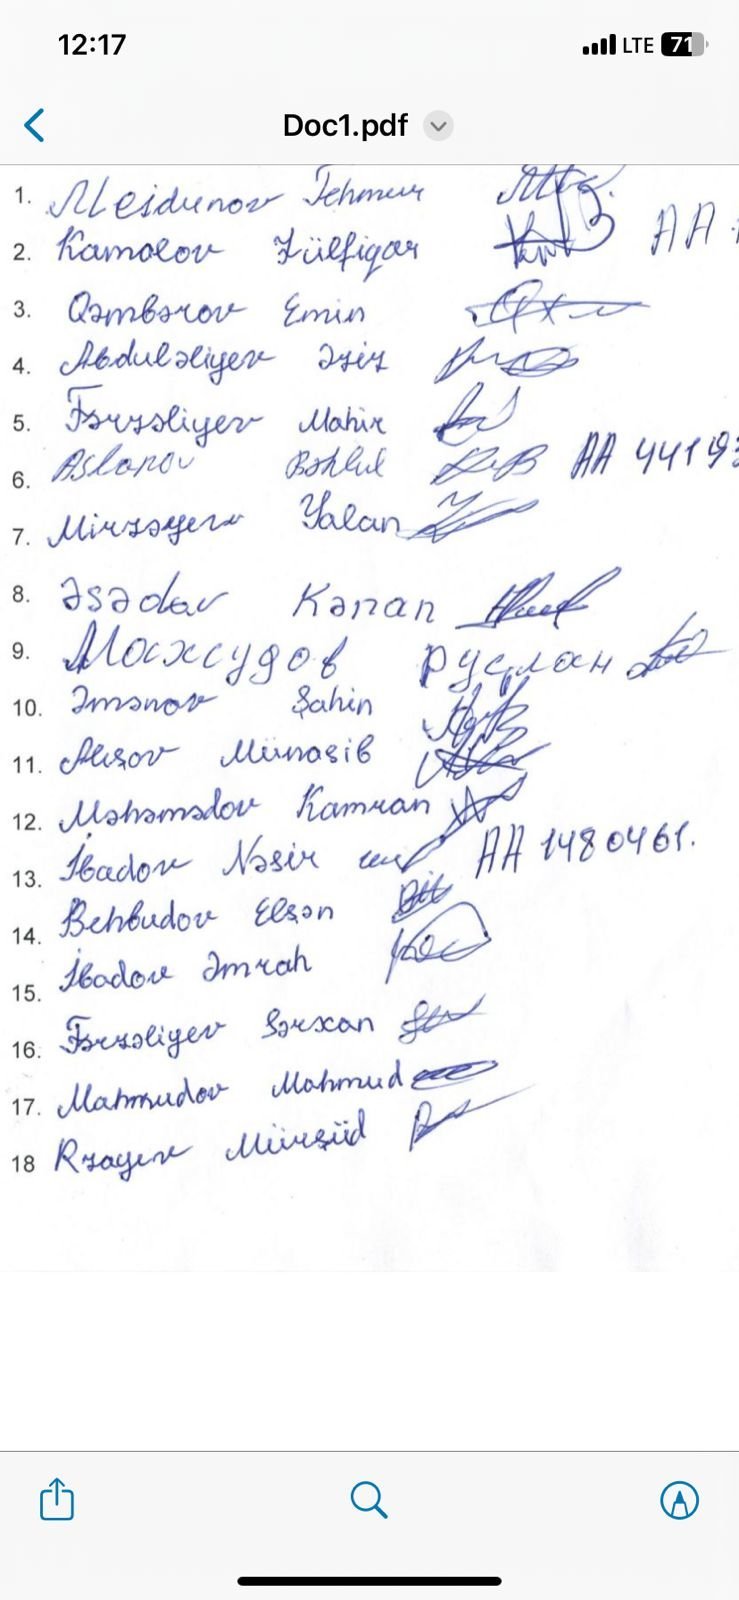 12:17 LTE 71
Doc1.pdf
1. Meidunov Tehmur
2. Kamalov Zülfiqar AA
3. Qəmbərov Emin
4. Abduləliyev Əziz
5. Fərzəliyev Mahir
6. Aslanov Bəhlul AA 44193
7. Mirzəyev Yalan
8. Əsədov Kənan
9. Махсудов Руслан
10. Əmənov Şahin
11. Alışov Münasib
12. Məhəmədov Kamran
13. İbadov Nəsir AA 1480461.
14. Behbudov Elşən
15. İbadov Əmrah
16. Fərzəliyev Sərxan
17. Mahmudov Mahmud
18 Rzayev Mürşüd